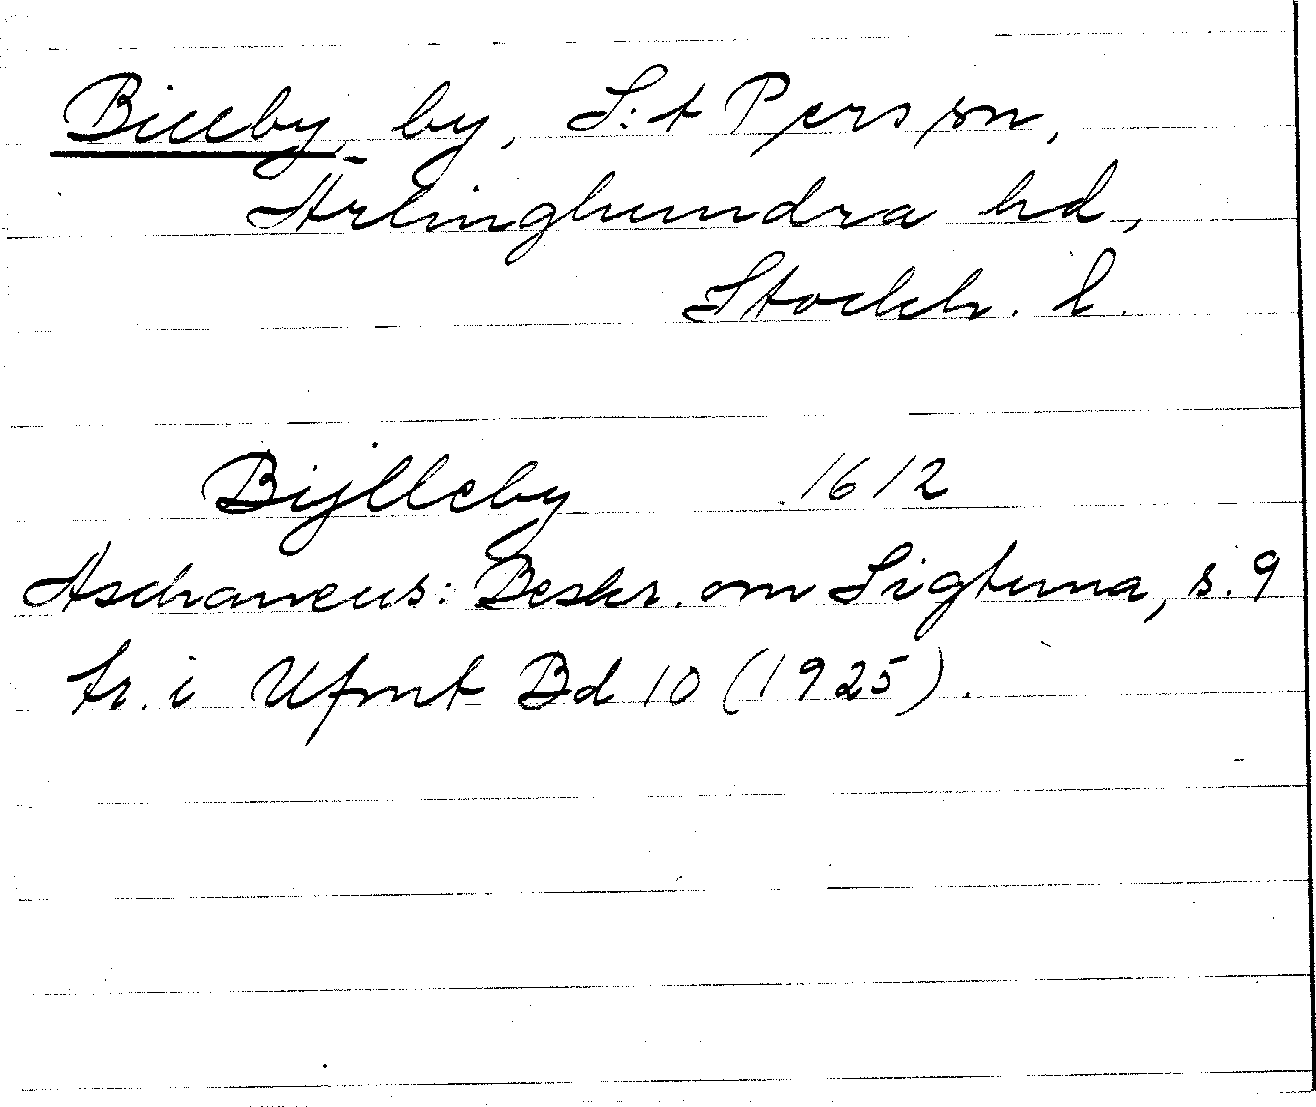 Billby, by, S:t Persson,
Ärlinghundra hd,
Stockh. l.
Bijlleby 1612
Aschaneus: Beskr. om Sigtuna, s. 9
tr. i Ufmt Bd 10 (1925).